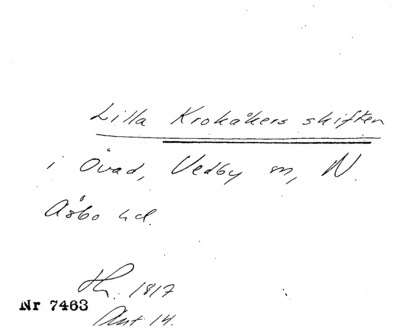 Lilla Krokåkers skiften
i Övad, Vedby sn, N.
Åsbo hd.
Hr. 1817
Akt 14.
Nr 7463